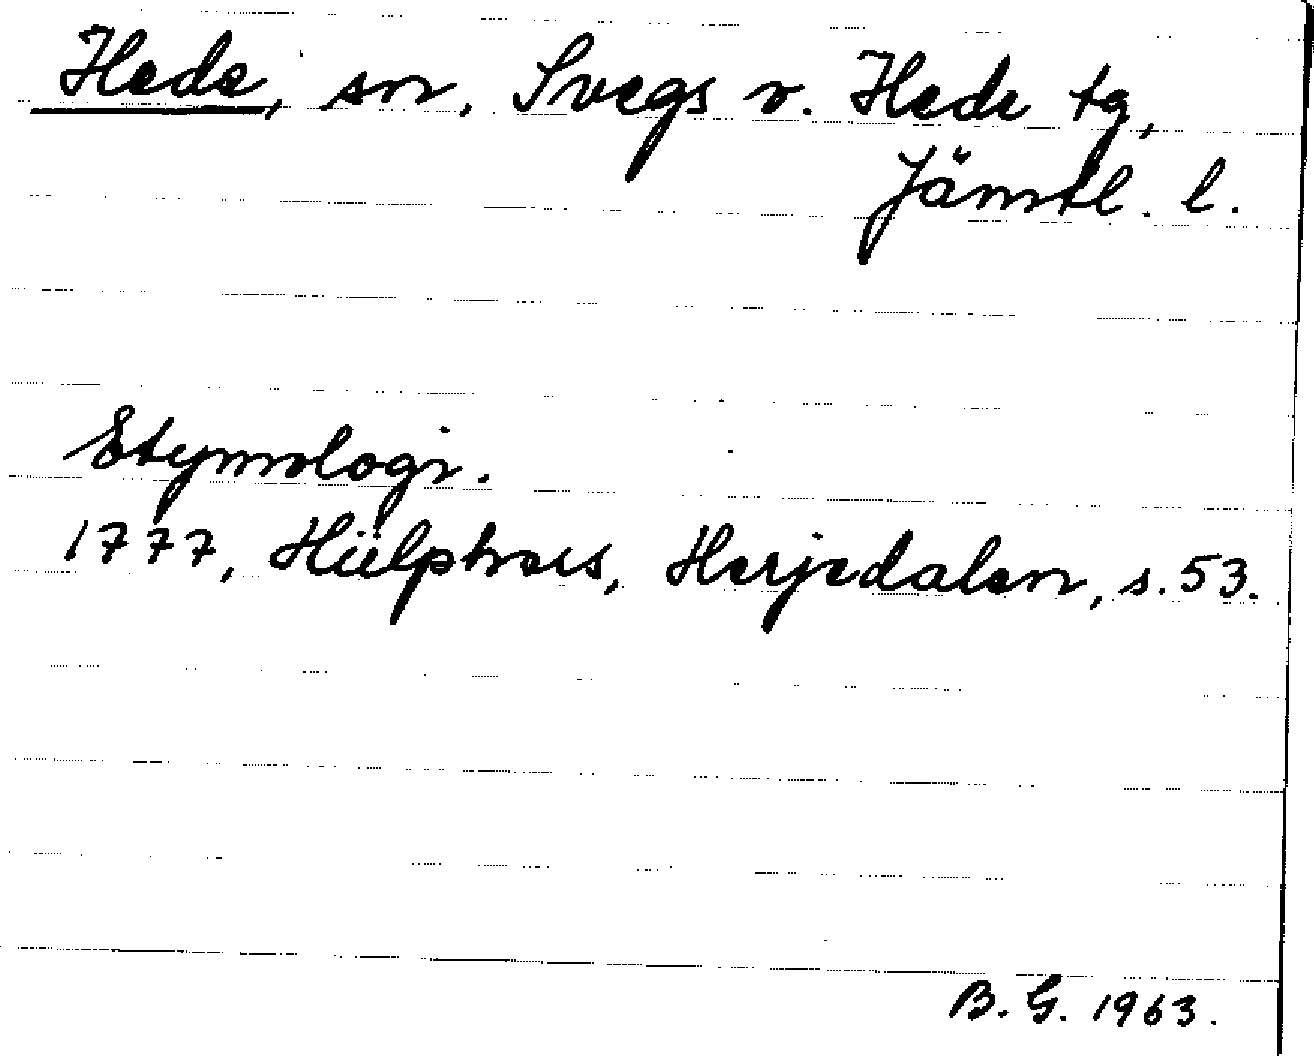 Hede, sn, Svegs o. Hede tg,
Jämtl. l.
Etymologi.
1777, Hülphers, Herjedalen, s. 53.
B. G. 1963.